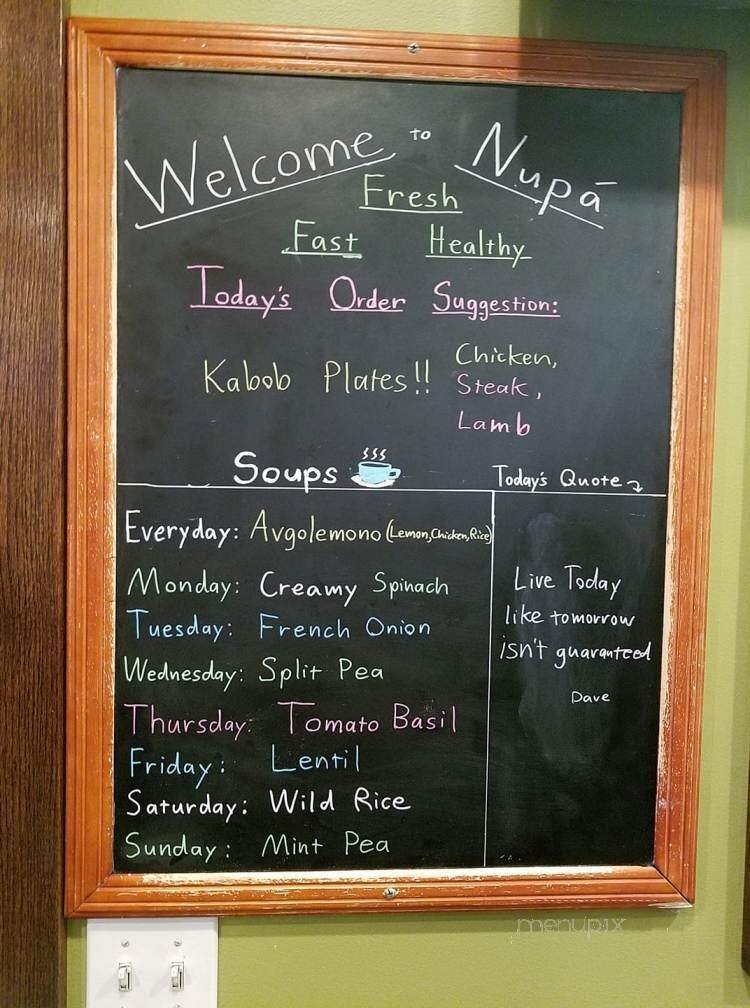 Welcome to Nupā
Fresh
Fast Healthy
Today's Order Suggestion:
Kabob Plates!! Chicken,
Steak,
Lamb
Soups
Today's Quote
Everyday: Avgolemono (Lemon, Chicken, Rice)
Monday: Creamy Spinach
Tuesday: French Onion
Wednesday: Split Pea
Thursday: Tomato Basil
Friday: Lentil
Saturday: Wild Rice
Sunday: Mint Pea
Live Today
like tomorrow
isn't guaranteed
Dave
menupix